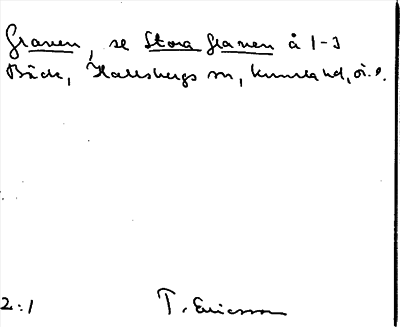 Graven, se Stora Graven å 1-3
Bäck, Hallsbergs sn, Kumla hd, ö. l.
2:1 T. Ericsson